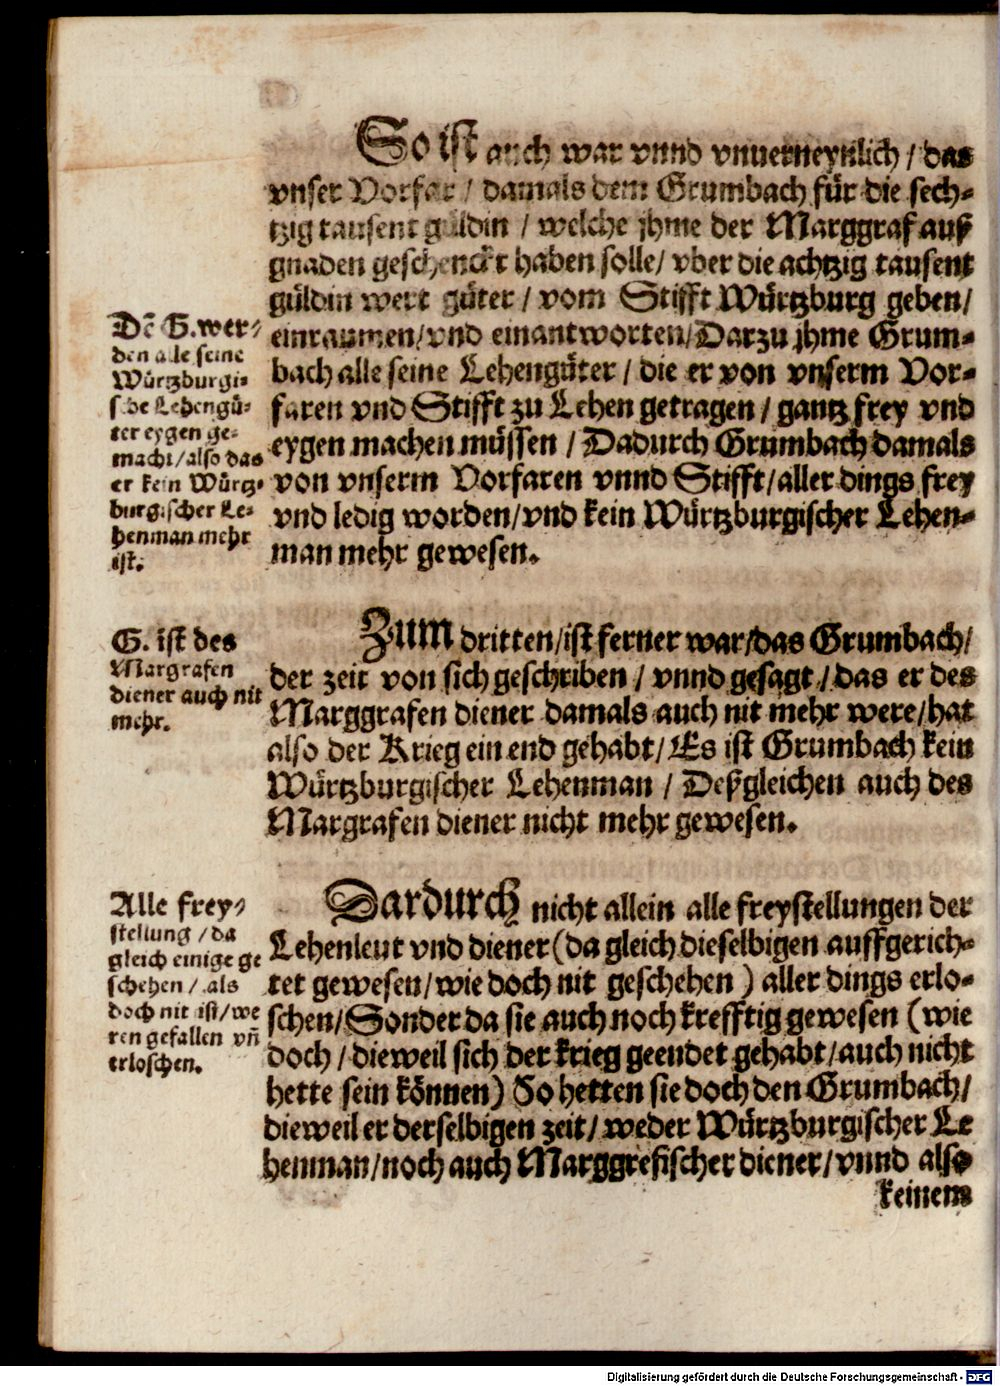 So ist auch war vnnd vnuerneynlich / das
vnser Vorfar / damals dem Grumbach für die sech-
tzig tausent güldin / welche jhme der Marggraf auß
gnaden geschenckt haben solle / vber die achtzig tausent
güldin wert güter / vom Stifft Würtzburg geben /
einraumen / vnd einantworten / Darzu jhme Grum-
bach alle seine Lehengüter / die er von vnserm Vor-
faren vnd Stifft zu Lehen getragen / gantz frey vnd
eygen machen müssen / Dadurch Grumbach damals
von vnserm Vorfaren vnnd Stifft / aller dings frey
vnd ledig worden / vnd kein Würtzburgischer Lehen-
man mehr gewesen.
Dē G. wer-
den alle seine
Würtzburgi-
sche Lehengü-
ter eygen ge-
macht / also das
er kein Würtz-
burgischer Le-
henman mehr
ist.
Zum dritten / ist ferner war / das Grumbach /
der zeit von sich geschriben / vnnd gesagt / das er des
Marggrafen diener damals auch nit mehr were / hat
also der Krieg ein end gehabt / Es ist Grumbach kein
Würtzburgischer Lehenman / Deßgleichen auch des
Margrafen diener nicht mehr gewesen.
G. ist des
Margrafen
diener auch nit
mehr.
Dardurch nicht allein alle freystellungen der
Lehenleut vnd diener (da gleich dieselbigen auffgerich-
tet gewesen / wie doch nit geschehen) aller dings erlo-
schen / Sonder da sie auch noch krefftig gewesen (wie
doch / dieweil sich der krieg geendet gehabt / auch nicht
hette sein können) So hetten sie doch den Grumbach /
dieweil er derselbigen zeit / weder Würtzburgischer Le
henman / noch auch Marggrefischer diener / vnnd also
keinem
Alle frey-
stellung / da
gleich einige ge
schehen / als
doch nit ist / we
ren gefallen vñ
erloschen.
Digitalisierung gefördert durch die Deutsche Forschungsgemeinschaft - DFG